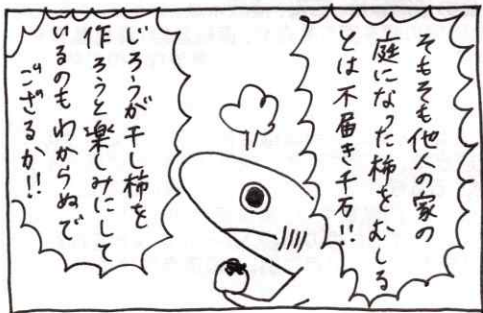 そもそも他人の家の
庭になった柿をむしる
とは不届き千万!!
じろうが干し柿を
作ろうと楽しみにして
いるのもわからぬで
ござるか!!